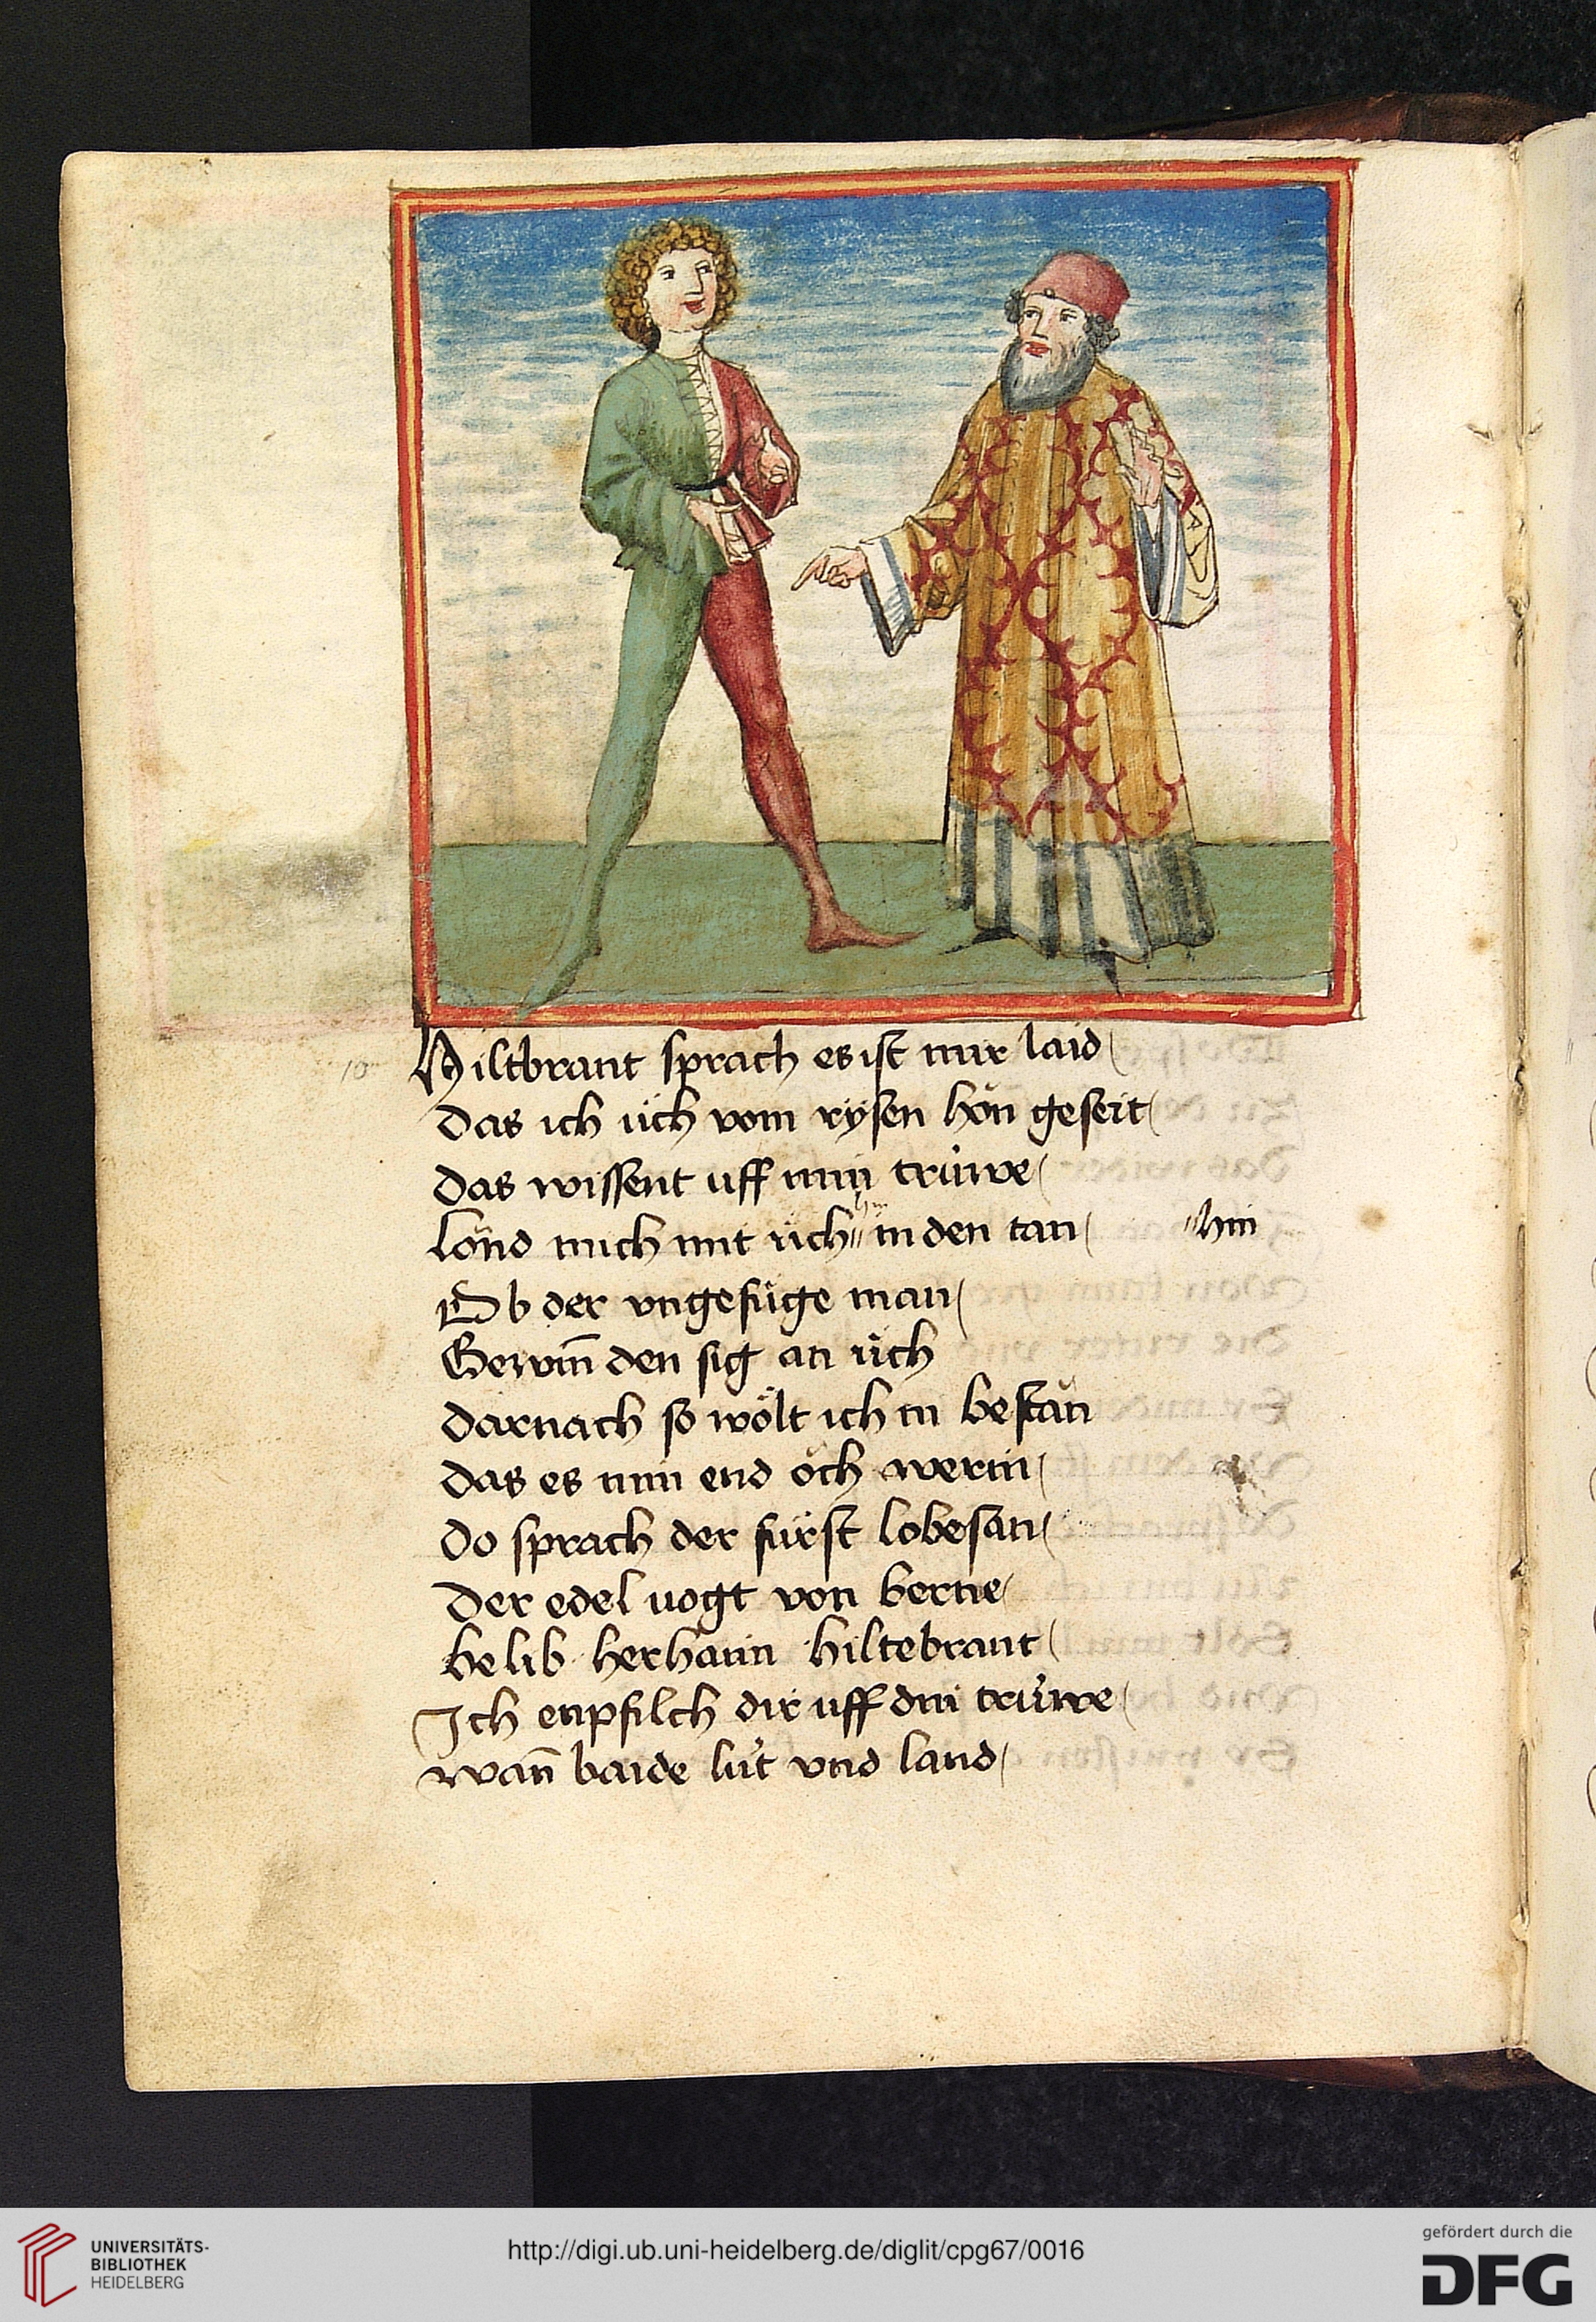 10
Hiltbrant sprach es ist mir laid
Das ich üch vom rysen hön geseit
Das wissent uff min trüwe
Lönd mich mit üch〃 in den tan 〃hin
Ob der vngefüge man
Gewin̄ den sig an üch
Darnach so wölt ich in bestän
Das es min end öch werin
Do sprach der fürst lobesan
Der edel uogt von berne
belib her haim hiltebrant
Ich enpfilch dir uff din trüwe
wan̄ baide lüt vnd land
UNIVERSITÄTS-
BIBLIOTHEK
HEIDELBERG
http://digi.ub.uni-heidelberg.de/diglit/cpg67/0016
gefördert durch die
DFG